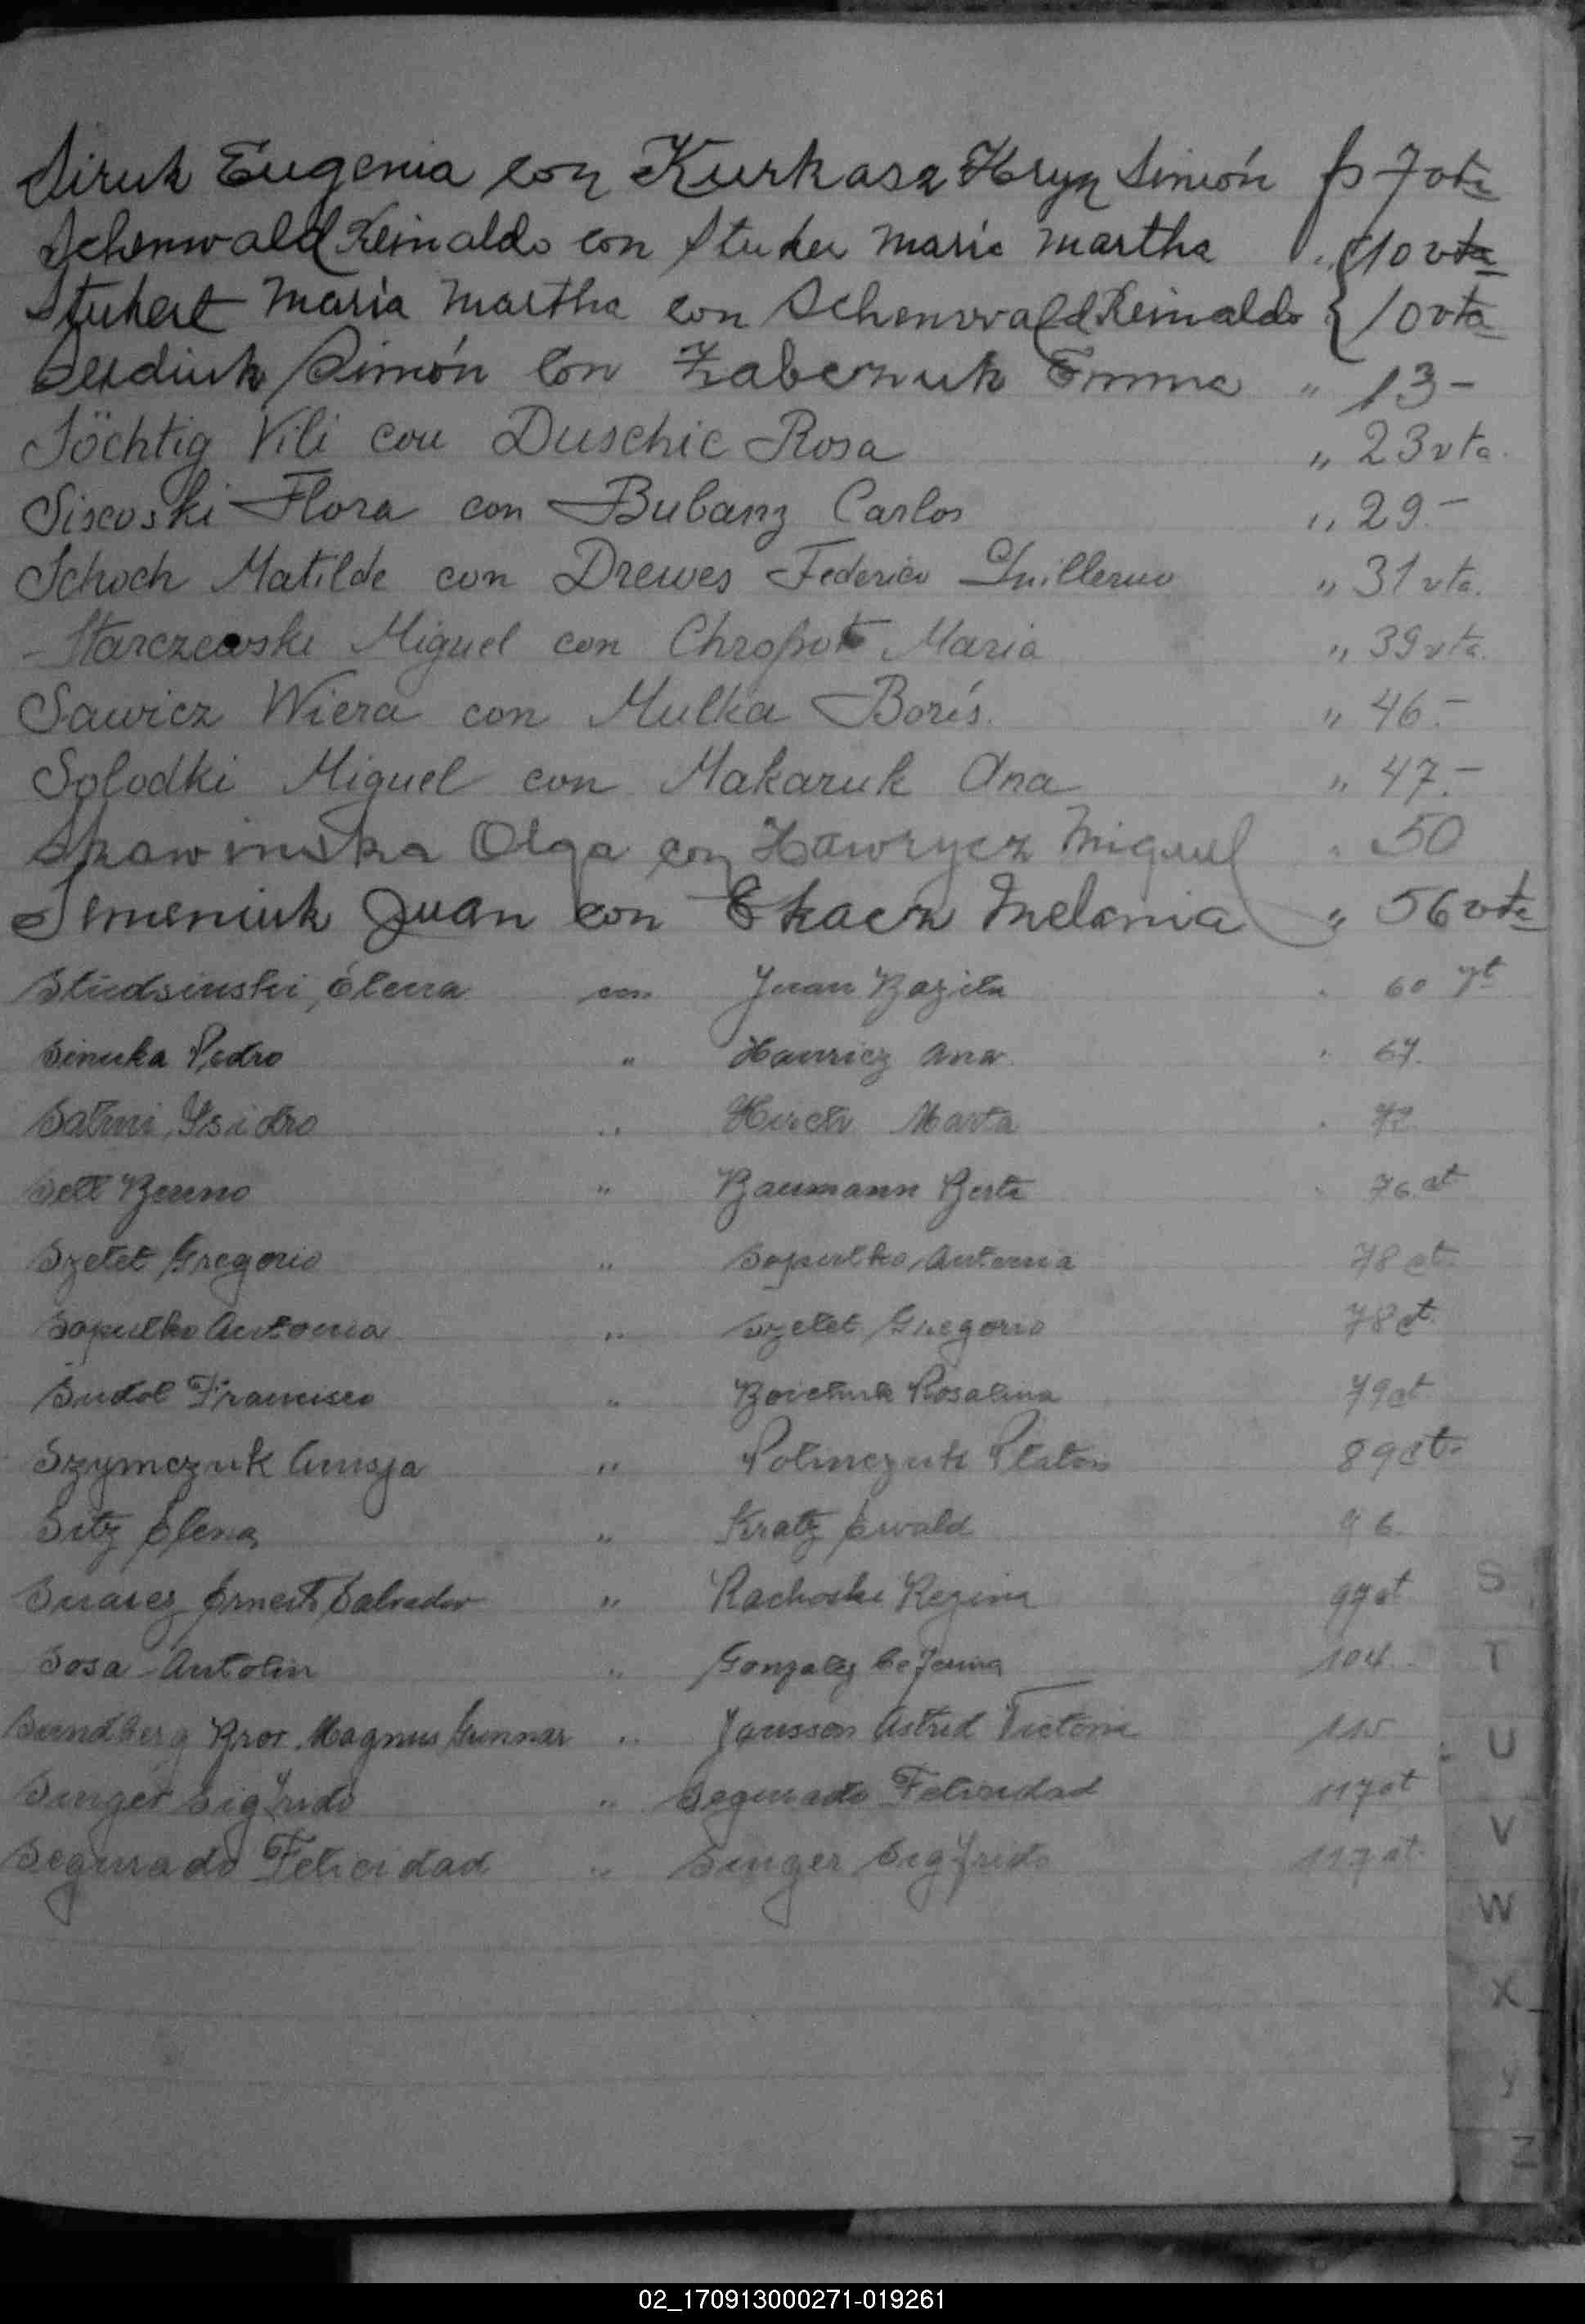 Siruk Eugenia con Kurkasz Hryn Simón fs 7 vta
Schenwald Reinaldo con Stuker Maria Martha " 10 vta
Stukert Maria Martha con Schenwald Reinaldo 10 vta
Serdiuk Simón con Zabeznuk Emma " 13-
Söchtig Vili con Duschic Rosa " 23 vta.
Siscoski Flora con Bubanz Carlos " 29.-
Schoch Matilde con Drewes Federico Guillermo " 31 vta.
- Starczewski Miguel con Chropot Maria " 39 vta.
Sawicz Wiera con Mulka Borís. " 46.-
Solodki Miguel con Makaruk Ana " 47.-
Skawinska Olga con Hawrycz Miguel " 50
Semeniuk Juan con Tkacz Melania " 56 vta
Studsinski, Elena con Juan Bazila " 60 vt
Sinuka Pedro " Hauricz Ana. " 67.
Isidro " Marta "
Sell Benno " Baumann Berta " 76 vt
Szelet Gregorio " Sapulko Antonia 78 vt.
Sapulko Antonia " Szelet Gregorio 78 vt.
Sudol Francisco " Boichuk Rosalina 79 vt
Szymczuk " Polinczuk Platon 89 vt.
Sitz Elena " Kratz Ewald 96.
Suarez Ernesto Salvador " Rachoski Regina 97 vt
Sosa Antolin " Gonzalez Ceferina 104.
Sundberg Bror Magnus Gunnar " Jansson Astrid Victoria 115
Singer Sigfrido " Segurado Felicidad 117 vt
Segurado Felicidad " Singer Sigfrido 117 vt.
S
T
U
V
W
X
Y
Z
02_170913000271-019261